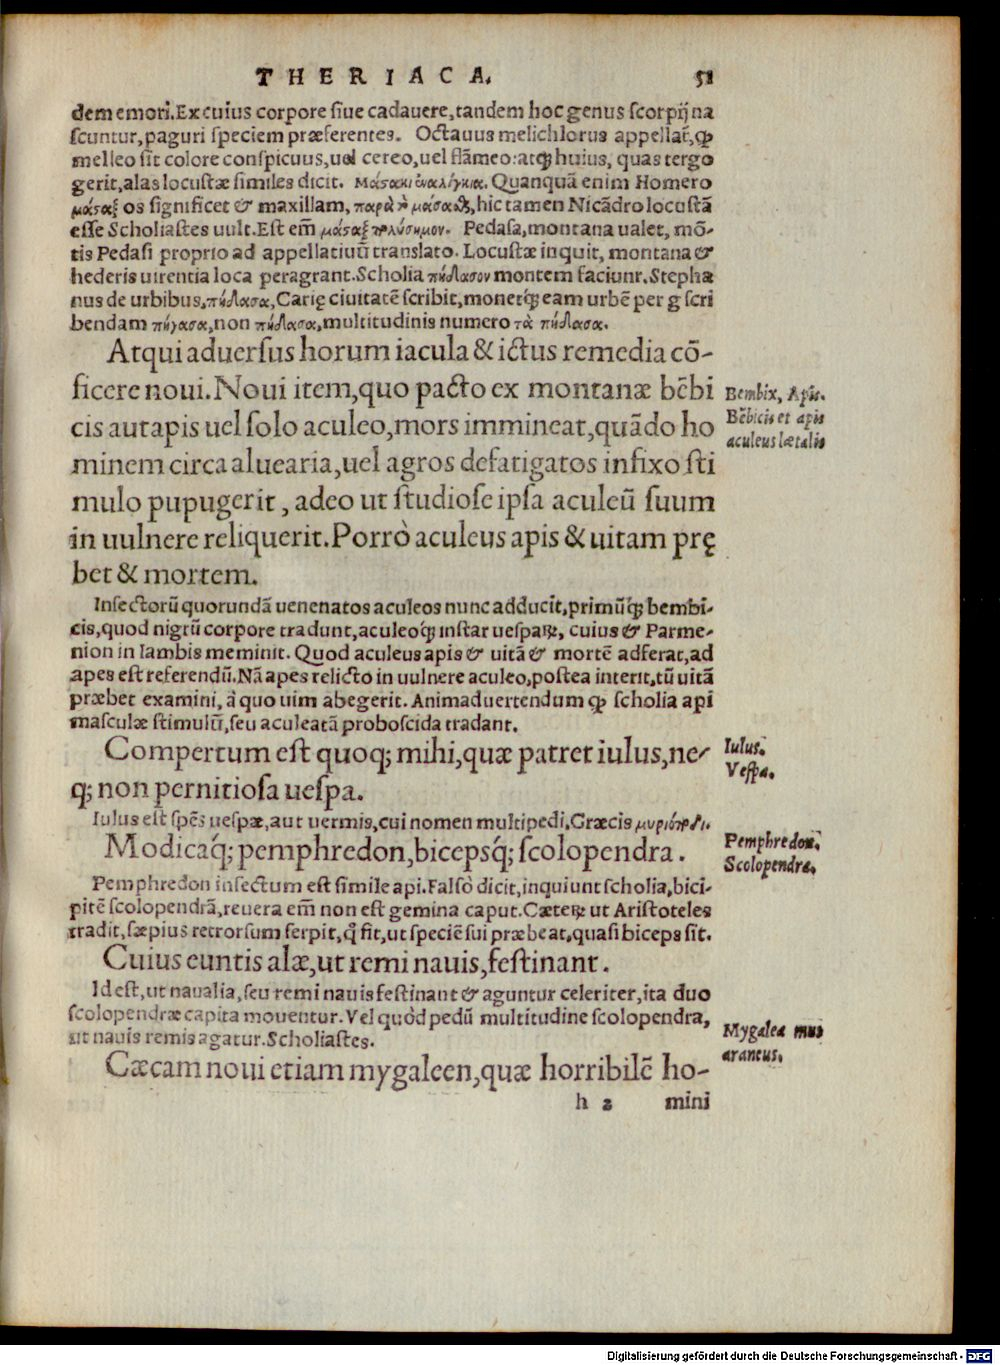 THERIACA. 51
dem emori. Ex cuius corpore siue cadauere, tandem hoc genus scorpij na
scuntur, paguri speciem præferentes. Octauus melichlorus appellat̃, ꝙ
melleo sit colore conspicuus, uel cereo, uel flãmeo: atqꝫ huius, quas tergo
gerit, alas locustæ similes dicit. Μάσακι ἐναλίγκια. Quanquã enim Homero
μάσαξ os significet & maxillam, παρὰ τὸ μάσαθς, hic tamen Nicãdro locustã
esse Scholiastes uult. Est em̃ μάσαξ πολύσημον. Pedasa, montana ualet, mõ-
tis Pedasi proprio ad appellatiuũ translato. Locustæ inquit, montana &
hederis uirentia loca peragrant. Scholia πήδασον montem faciunt. Stepha
nus de urbibus, πήδασα, Carię ciuitatẽ scribit, monetqꝫ eam urbẽ per g scri
bendam πήγασα, non πήδασα, multitudinis numero τὰ πήδασα.
Atqui aduersus horum iacula & ictus remedia cõ-
ficere noui. Noui item, quo pacto ex montanæ bẽbi
cis aut apis uel solo aculeo, mors immineat, quãdo ho
minem circa aluearia, uel agros defatigatos infixo sti
mulo pupugerit, adeo ut studiose ipsa aculeũ suum
in uulnere reliquerit. Porrò aculeus apis & uitam prę
bet & mortem.
Bembix, Apis.
Bẽbicis et apis
aculeus lætalis
Insectorũ quorundã uenenatos aculeos nunc adducit, primũqꝫ bembi-
cis, quod nigrũ corpore tradunt, aculeoqꝫ instar uespaꝝ, cuius & Parme-
nion in Iambis meminit. Quod aculeus apis & uitã & mortẽ adferat, ad
apes est referendũ. Nã apes relicto in uulnere aculeo, postea interit, tũ uitã
præbet examini, à quo uim abegerit. Animaduertendum ꝙ scholia api
masculæ stimulũ, seu aculeatã proboscida tradant.
Compertum est quoqꝫ mihi, quæ patret iulus, ne-
qꝫ non pernitiosa uespa.
Iulus.
Vespa.
Iulus est spẽs uespæ, aut uermis, cui nomen multipedi, Græcis μυριόποδι.
Modicaqꝫ́ pemphredon, bicepsqꝫ́ scolopendra.
Pemphredon.
Scolopendra.
Pemphredon insectum est simile api. Falsò dicit, inquiunt scholia, bici-
pitẽ scolopendrã, reuera em̃ non est gemina caput. Cæteꝝ ut Aristoteles
tradit, sæpius retrorsum serpit, q̃ fit, ut speciẽ sui præbeat, quasi biceps sit.
Cuius euntis alæ, ut remi nauis, festinant.
Id est, ut naualia, seu remi nauis festinant & aguntur celeriter, ita duo
scolopendræ capita mouentur. Vel quòd pedũ multitudine scolopendra,
ut nauis remis agatur. Scholiastes.
Cæcam noui etiam mygaleen, quæ horribilẽ ho-
Mygalea mus
araneus.
h 2 mini
Digitalisierung gefördert durch die Deutsche Forschungsgemeinschaft - DFG